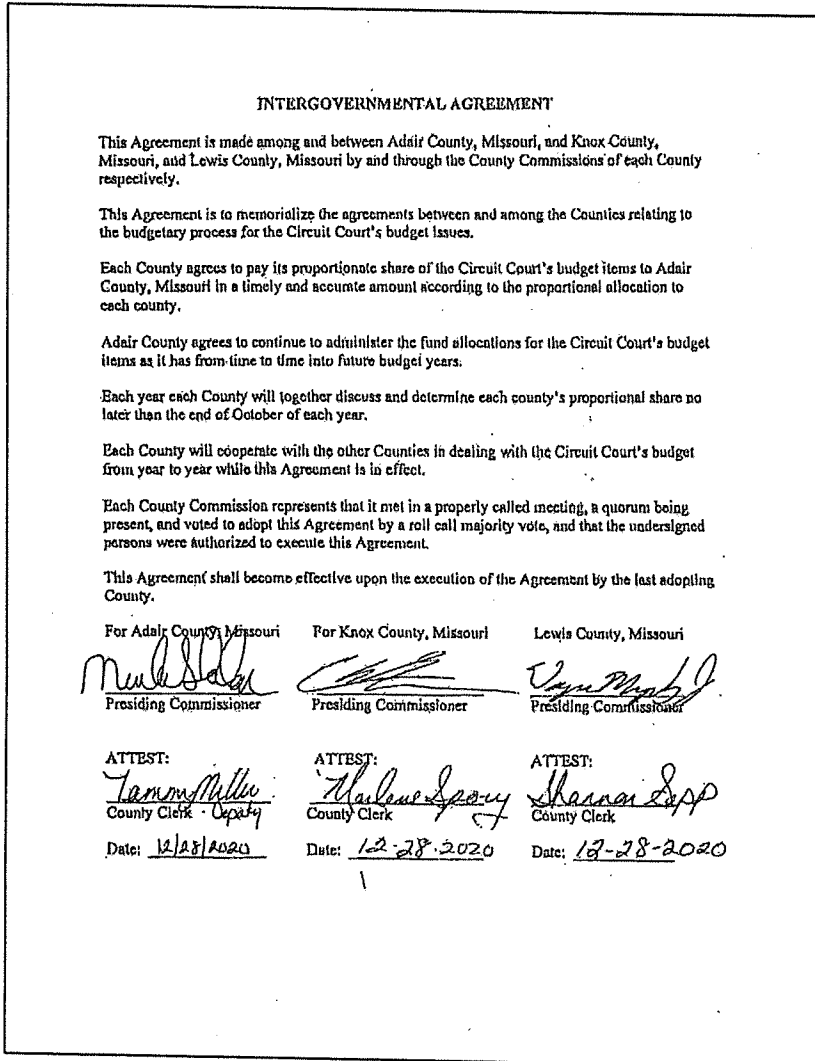 INTERGOVERNMENTAL AGREEMENT
This Agreement is made among and between Adair County, Missouri, and Knox County,
Missouri, and Lewis County, Missouri by and through the County Commissions of each County
respectively.
This Agreement is to memorialize the agreements between and among the Counties relating to
the budgetary process for the Circuit Court's budget issues.
Each County agrees to pay its proportionate share of the Circuit Court's budget items to Adair
County, Missouri in a timely and accurate amount according to the proportional allocation to
each county.
Adair County agrees to continue to administer the fund allocations for the Circuit Court's budget
items as it has from time to time into future budget years.
Each year each County will together discuss and determine each county's proportional share no
later than the end of October of each year.
Each County will cooperate with the other Counties in dealing with the Circuit Court's budget
from year to year while this Agreement is in effect.
Each County Commission represents that it met in a properly called meeting, a quorum being
present, and voted to adopt this Agreement by a roll call majority vote, and that the undersigned
persons were authorized to execute this Agreement.
This Agreement shall become effective upon the execution of the Agreement by the last adopting
County.
For Adair County, Missouri For Knox County, Missouri Lewis County, Missouri
Presiding Commissioner Presiding Commissioner Presiding Commissioner
ATTEST: ATTEST: ATTEST:
Tammy Miller Marlene Spory Sharon Sapp
County Clerk - Deputy County Clerk County Clerk
Date: 12/28/2020 Date: 12-28-2020 Date: 12-28-2020